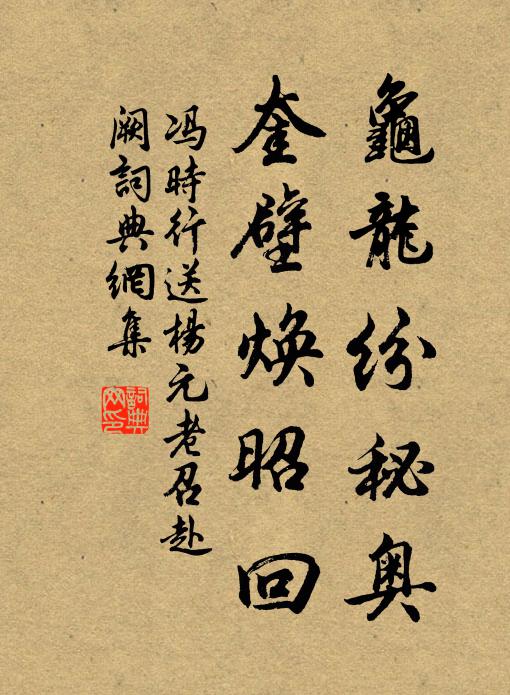 龜龍紛秘奧
奎壁煥昭回
冯時行送楊元老召赴
闕詞典網集
詞典
网印